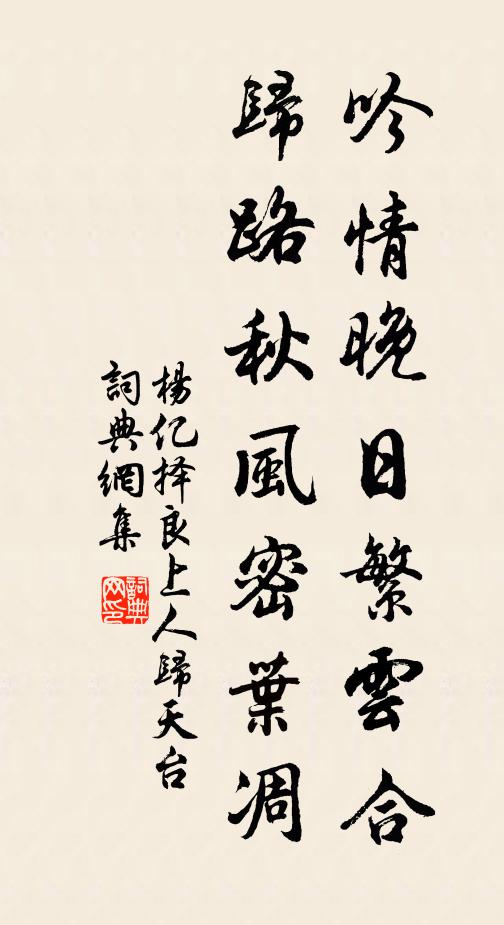 吟情晚日繁雲合
歸路秋風密葉凋
楊亿择良上人歸天台
詞典網集
詞典网印